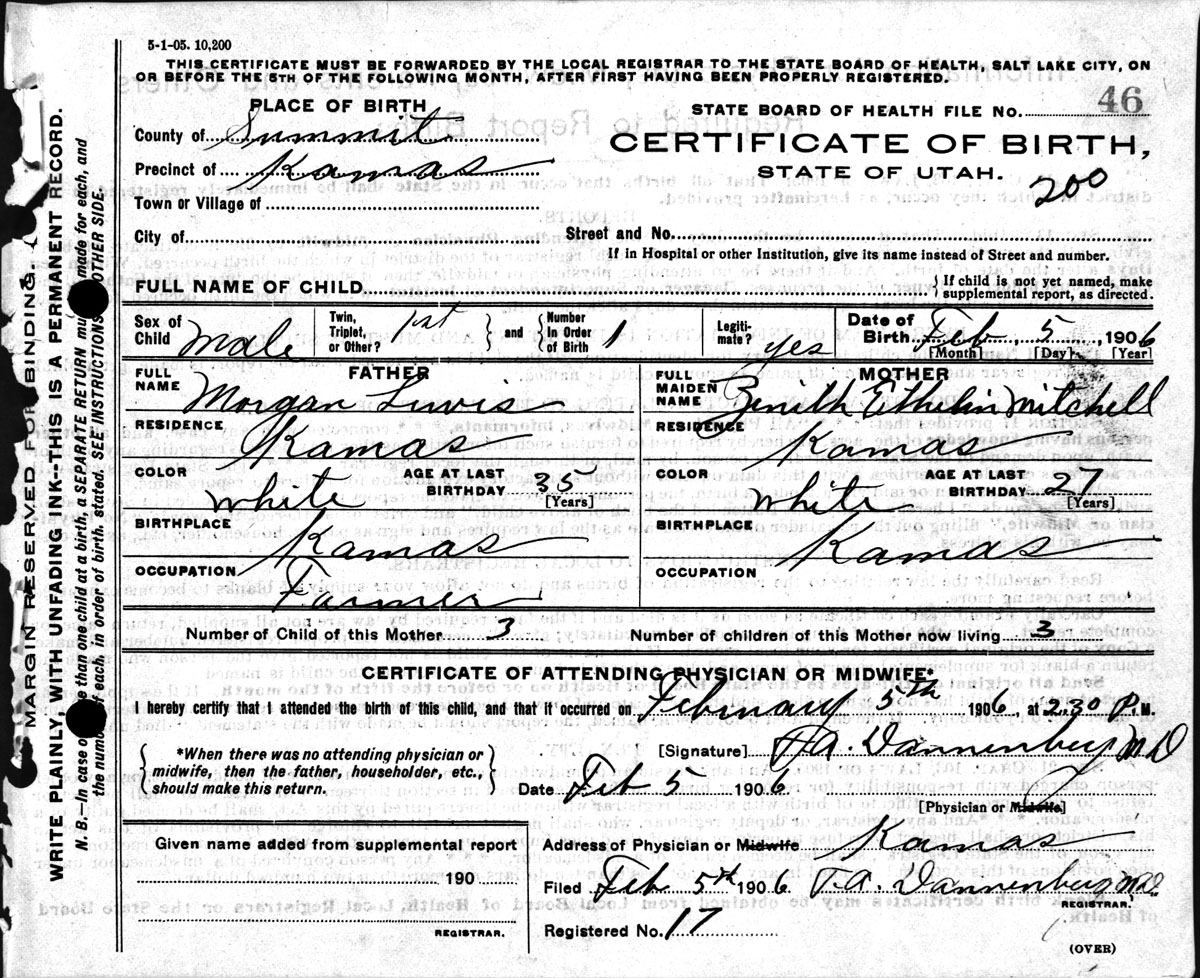 5-1-05. 10,200
THIS CERTIFICATE MUST BE FORWARDED BY THE LOCAL REGISTRAR TO THE STATE BOARD OF HEALTH, SALT LAKE CITY, ON
OR BEFORE THE 5TH OF THE FOLLOWING MONTH, AFTER FIRST HAVING BEEN PROPERLY REGISTERED.
PLACE OF BIRTH
STATE BOARD OF HEALTH FILE NO. 46
County of Summit
CERTIFICATE OF BIRTH,
Precinct of Kamas
STATE OF UTAH.
200
Town or Village of
City of
Street and No.
If in Hospital or other Institution, give its name instead of Street and number.
FULL NAME OF CHILD
{ If child is not yet named, make
supplemental report, as directed.
Sex of Child Male
Twin, Triplet, or Other? 1st } and { Number In Order of Birth 1
Legitimate? yes
Date of Birth Feb, 5, 1906
[Month] [Day] [Year]
FATHER
FULL NAME Morgan Lewis
RESIDENCE Kamas
COLOR white
AGE AT LAST BIRTHDAY 35 [Years]
BIRTHPLACE Kamas
OCCUPATION Farmer
MOTHER
FULL MAIDEN NAME Zenith Ethelin Mitchell
RESIDENCE Kamas
COLOR white
AGE AT LAST BIRTHDAY 27 [Years]
BIRTHPLACE Kamas
OCCUPATION
Number of Child of this Mother 3
Number of children of this Mother now living 3
CERTIFICATE OF ATTENDING PHYSICIAN OR MIDWIFE*
I hereby certify that I attended the birth of this child, and that it occurred on February 5th 1906, at 2.30 P.M.
{ *When there was no attending physician or
midwife, then the father, householder, etc.,
should make this return. }
[Signature] T.A. Dannenberg MD
Date Feb 5 1906
[Physician or Midwife]
Given name added from supplemental report
190
REGISTRAR.
Address of Physician or Midwife Kamas
Filed Feb 5th 1906. T.A. Dannenberg M.D.
REGISTRAR.
Registered No. 17
(OVER)
MARGIN RESERVED FOR BINDING.
WRITE PLAINLY, WITH UNFADING INK--THIS IS A PERMANENT RECORD.
N. B.--In case of more than one child at a birth, a SEPARATE RETURN must be made for each, and
the number of each, in order of birth, stated. SEE INSTRUCTIONS OTHER SIDE.